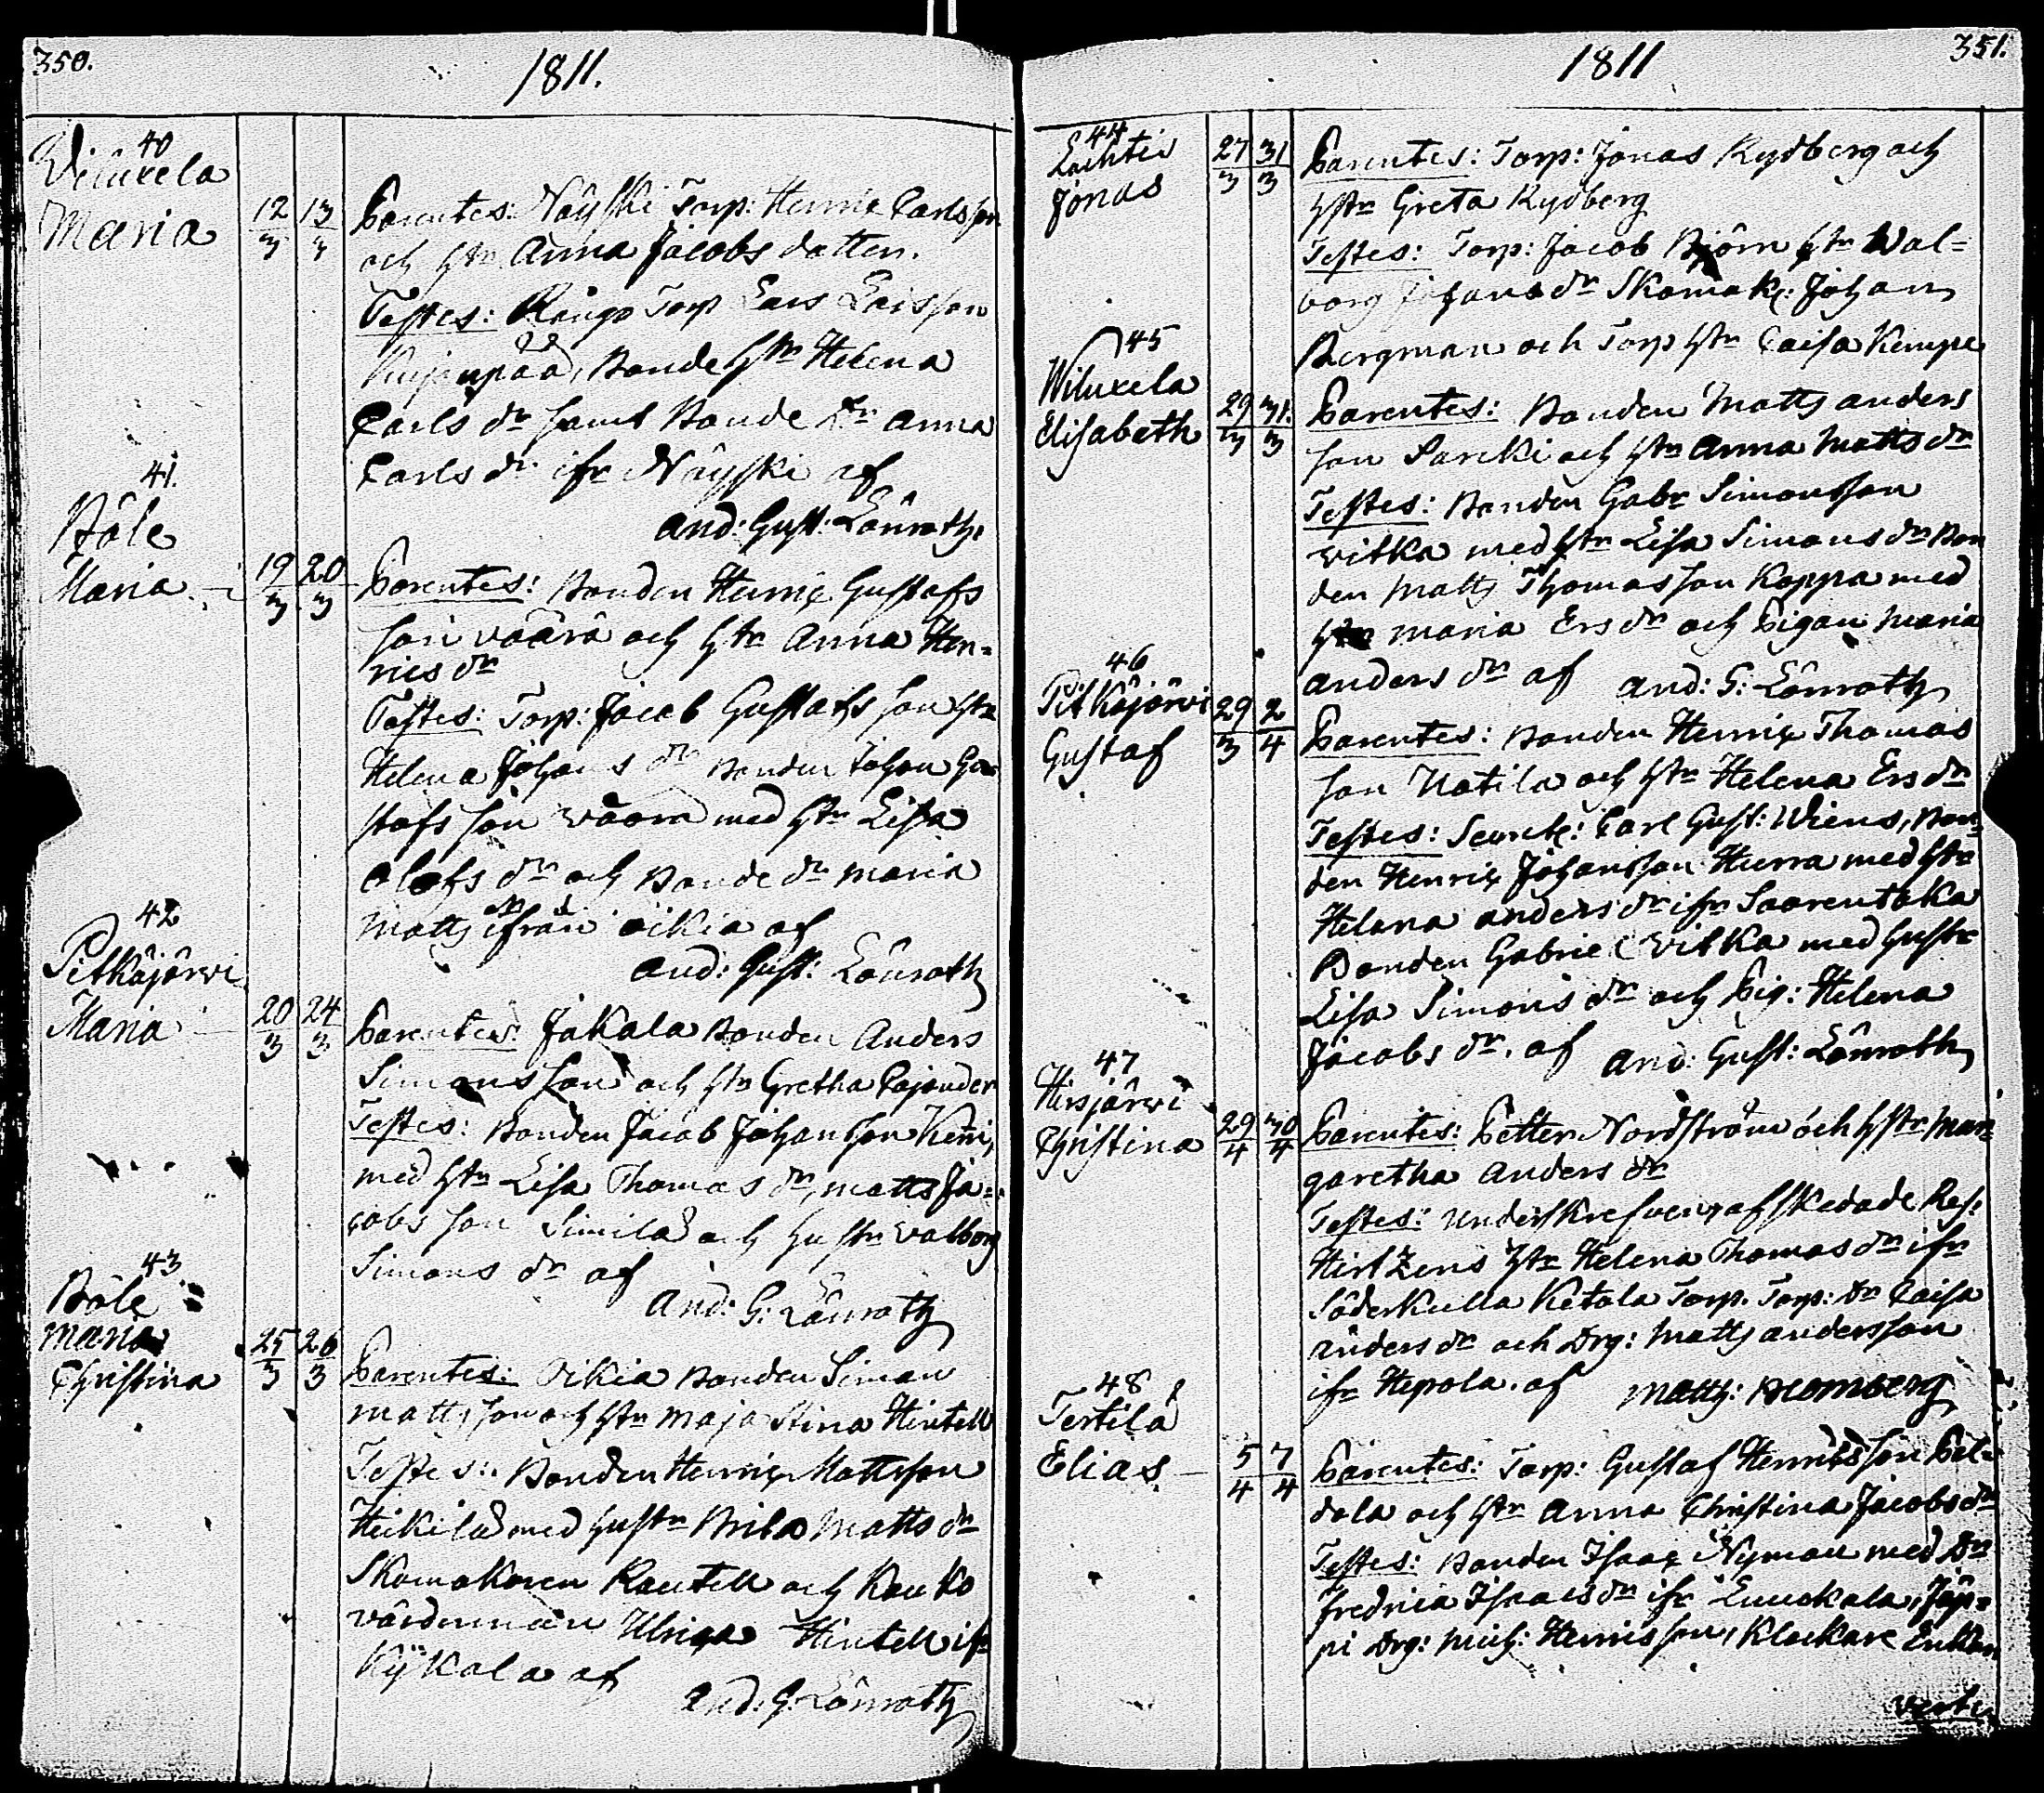 350.
1811.
40
Wiluxela
Maria
12/3 13/3
Parentes: Näyski Torp: Henric Carlsson
och hstr Anna Jacobs dotter.
Testes: Torp Lars Larsson
Bonde hstr Helena
Carls dr samt Bonde dr Anna
Carls dr ifr Näyski af
And: Gust: Lönroth
41.
Böle
Maria
19/3 20/3
Parentes: Bonden Henric Gustafs
son Väärä och hstr Anna Hen=
rics dr
Testes: Torp: Jacob Gustafs son hstr
Helena Johans dr Bonden Johan Gu
stafs son Väära med hstr Lisa
Olofs dr och Bonde dr Maria
Matts dr ifrån Oikia af
And: Gust: Lönroth
42
Pitkäjärvi
Maria
20/3 24/3
Parentes: Jakala Bonden Anders
Simons son och hstr Gretha Cajander
Testes: Bonden Jacob Johansson Keri,
med hstr Lisa Thomas dr, Matts Ja=
cobs son Simila och hustr Valborg
Simons dr af
And: G: Lönroth
43
Böle
Maria
Christina
25/3 26/3
Parentes: Oikia Bonden Simon
Mattsson och hstr Maja Stina Hintell
Testes: Bonden Henric Mattsson
Heikilä med hustr Brita Matts dr
Skomakaren Rautell och
Ulrica Hintell ifr
Kÿkala af
And: G: Lönroth
1811
351.
44
Lachtis
Jonas
27/3 31/3
Parentes: Torp: Jonas Rydberg och
hstr Greta Rydberg
Testes: Torp: Jacob Björn hstr Wal=
borg Johans dr Skomak: Johan
Bergman och Torp hstr Caisa Kempe
45
Wiluxela
Elisabeth
29/3 31/3
Parentes: Bonden Matts Anders
son Sarcki och hstr Anna Matts dr
Testes: Bonden Gabr Simonsson
Vitka med hstr Lisa Simons dr Bon
den Matts Thomasson Koppa med
hstr Maria Ers dr och Pigan Maria
Anders dr af And: G: Lönroth
46
Pitkäjärvi
Gustaf
29/3 2/4
Parentes: Bonden Henric Thomas
son Uotila och hstr Helena Ers dr
Testes: Carl Gust: Wiens, Bon=
den Henric Johansson Hurra med hstr
Helena Anders dr ifr Saarentaka
Bonden Gabriel Vitka med hustr
Lisa Simons dr och Pig: Helena
Jacobs dr. af And: Gust: Lönroth
47
Hirsjärvi
Christina
29/4 30/4
Parentes: Petter Nordström och hstr Mar=
garetha Anders dr
Testes: Underskrefven, afskedade Res:
Hirtzens hstr Helena Thomas dr ifr
Söderkulla Ketola Torp. Torp: dr Caisa
Anders dr och Drg: Matts Andersson
ifr Hepola. af Matth: Blomberg
48
Tertilä
Elias
5/4 7/4
Parentes: Torp: Gustaf Henricsson Pel=
dola och hstr Anna Christina Jacobs dr
Testes: Bonden Isaac Nyman med dr
Fredrica Isaacs dr ifr Luuckala, Jäp=
pi Drg: Mich: Henricsson, Klockare Enkan
verte